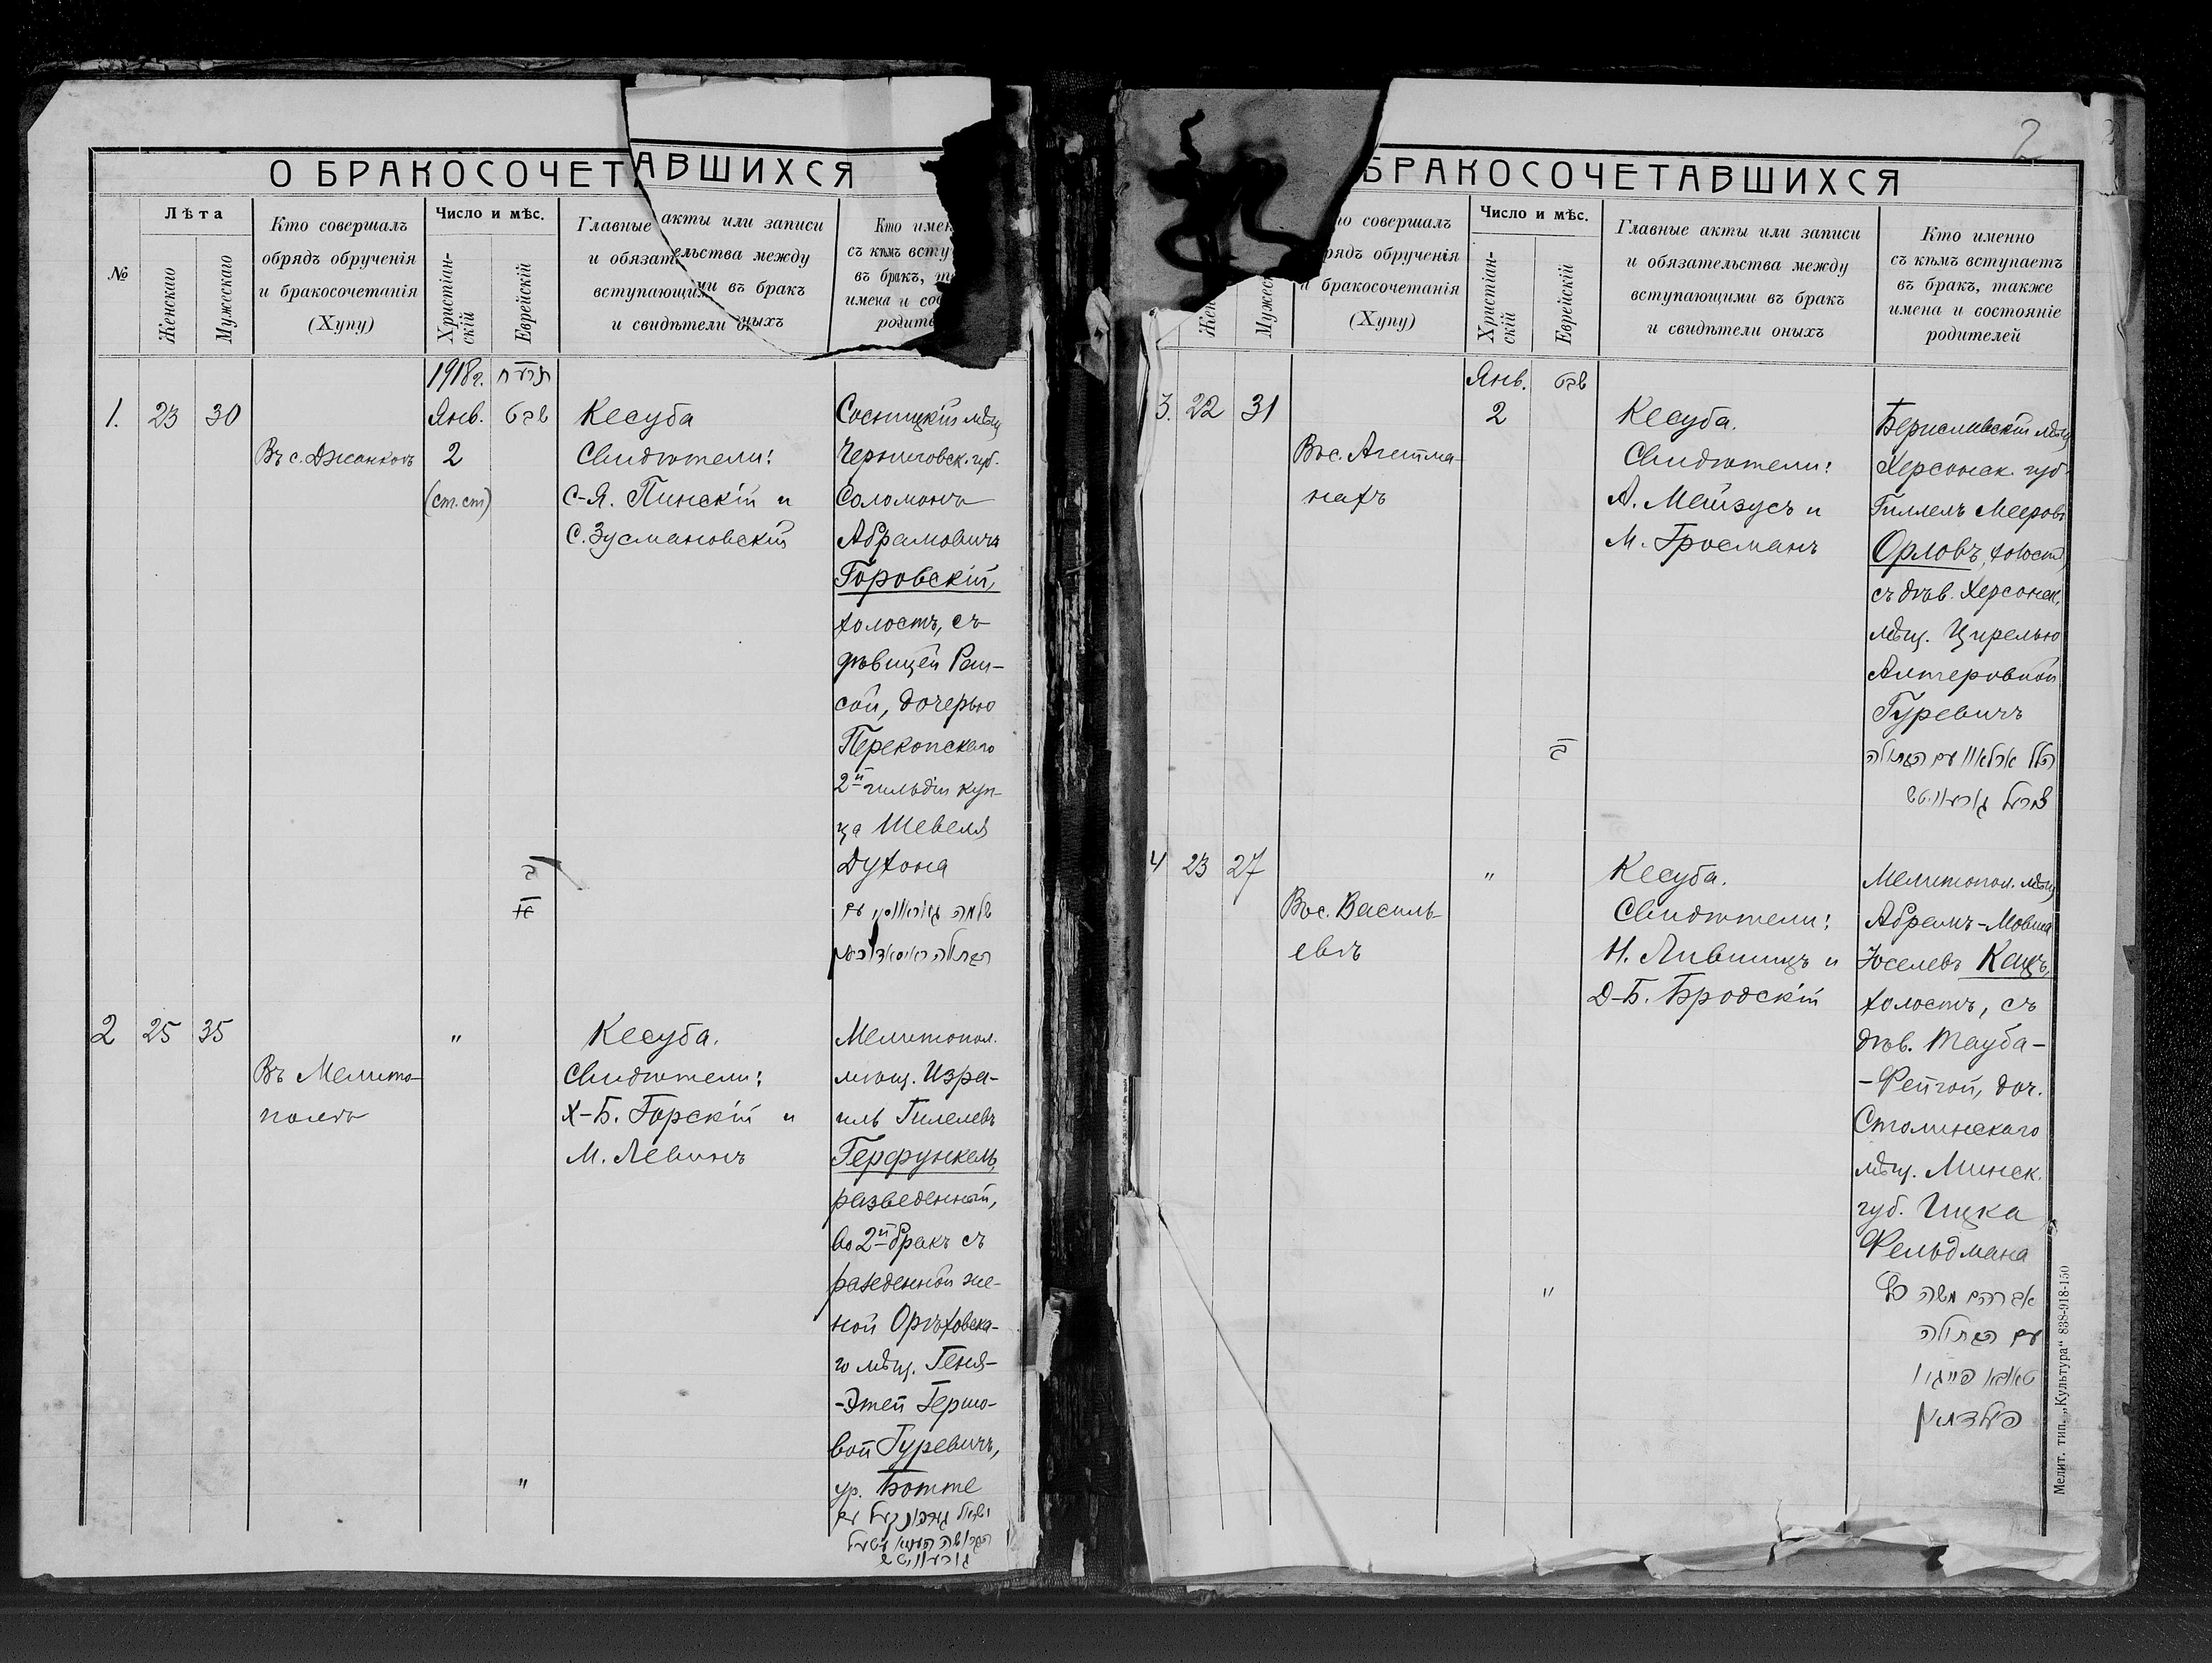 О БРАКОСОЧЕТАВШИХСЯ
№
Лѣта
Женскаго
Мужескаго
Кто совершалъ
обрядъ обрученія
и бракосочетанія
(Хупу)
Число и мѣс.
Христіан-
скій
Еврейскій
Главные акты или записи
и обязательства между
вступающими въ бракъ
и свидѣтели оныхъ
Кто имен
съ кѣмъ всту
въ бракъ, т
имена и со
родит
1918г. תרעח
1. 23 30
Въ с. Джанкоѣ
Янв. טבת
2
(ст.ст)
Кесуба
Свидѣтели:
С-Я. Пинскій и
С. Зусмановскій
Сосницкій мѣщ
Черниговск. губ.
Соломонъ
Абрамовичъ
Горовскій,
холостъ, съ
дѣвицей Раи-
сой, дочерью
Перекопскаго
2й гильдіи куп-
ца Шевеля
Духона
שלמה עם
הבתולה
2 25 35
Въ Мелито-
полѣ
"
Кесуба.
Свидѣтели:
Х-Б. Горскій и
М. Левинъ
Мелитопол.
мѣщ. Изра-
иль Гилелевъ
Герфункель,
разведенный,
во 2й бракъ съ
разведенной же-
ной Орѣховска-
го мѣщ. Геня-
-Этей Гершо-
вой Гуревичъ,
ур. Ботте
"
עם
הגרושה
גורעוויטש
2
БРАКОСОЧЕТАВШИХСЯ
Жен
Мужес
о совершалъ
рядъ обрученія
и бракосочетанія
(Хупу)
Число и мѣс.
Христіан-
скій
Еврейскій
Главные акты или записи
и обязательства между
вступающими въ бракъ
и свидѣтели оныхъ
Кто именно
съ кѣмъ вступаетъ
въ бракъ, также
имена и состояніе
родителей
Янв. טבת
3. 22 31
Въ с. Агайма-
нахъ
2
Кесуба.
Свидѣтели:
А. Мейзусъ и
М. Гросманъ
Бериславскій мѣщ
Херсонск. губ.
Гиллель Мееровъ
Орловъ, холост,
съ дѣв. Херсонск.
мѣщ. Цирелью
Алтеровной
Гуревичъ
הלל ארלאוו עם הבתולה
צירעל גורעוויטש
4 23 27
Въ с. Василь-
евкѣ
"
Кесуба.
Свидѣтели:
Н. Лившицъ и
Д-Б. Бродскій
Мелитопол. мѣщ
Абрамъ-Мовша
Іоселевъ Кацъ,
холостъ, съ
дѣв. Тауба-
-Фейгой, доч.
Столинскаго
мѣщ. Минск.
губ. Ицка
Фельдмана
"
אברהם משה כץ
עם הבתולה
טאובא פייגא
פעלדמאן
Мелит. тип. „Культура“ 838-918-150